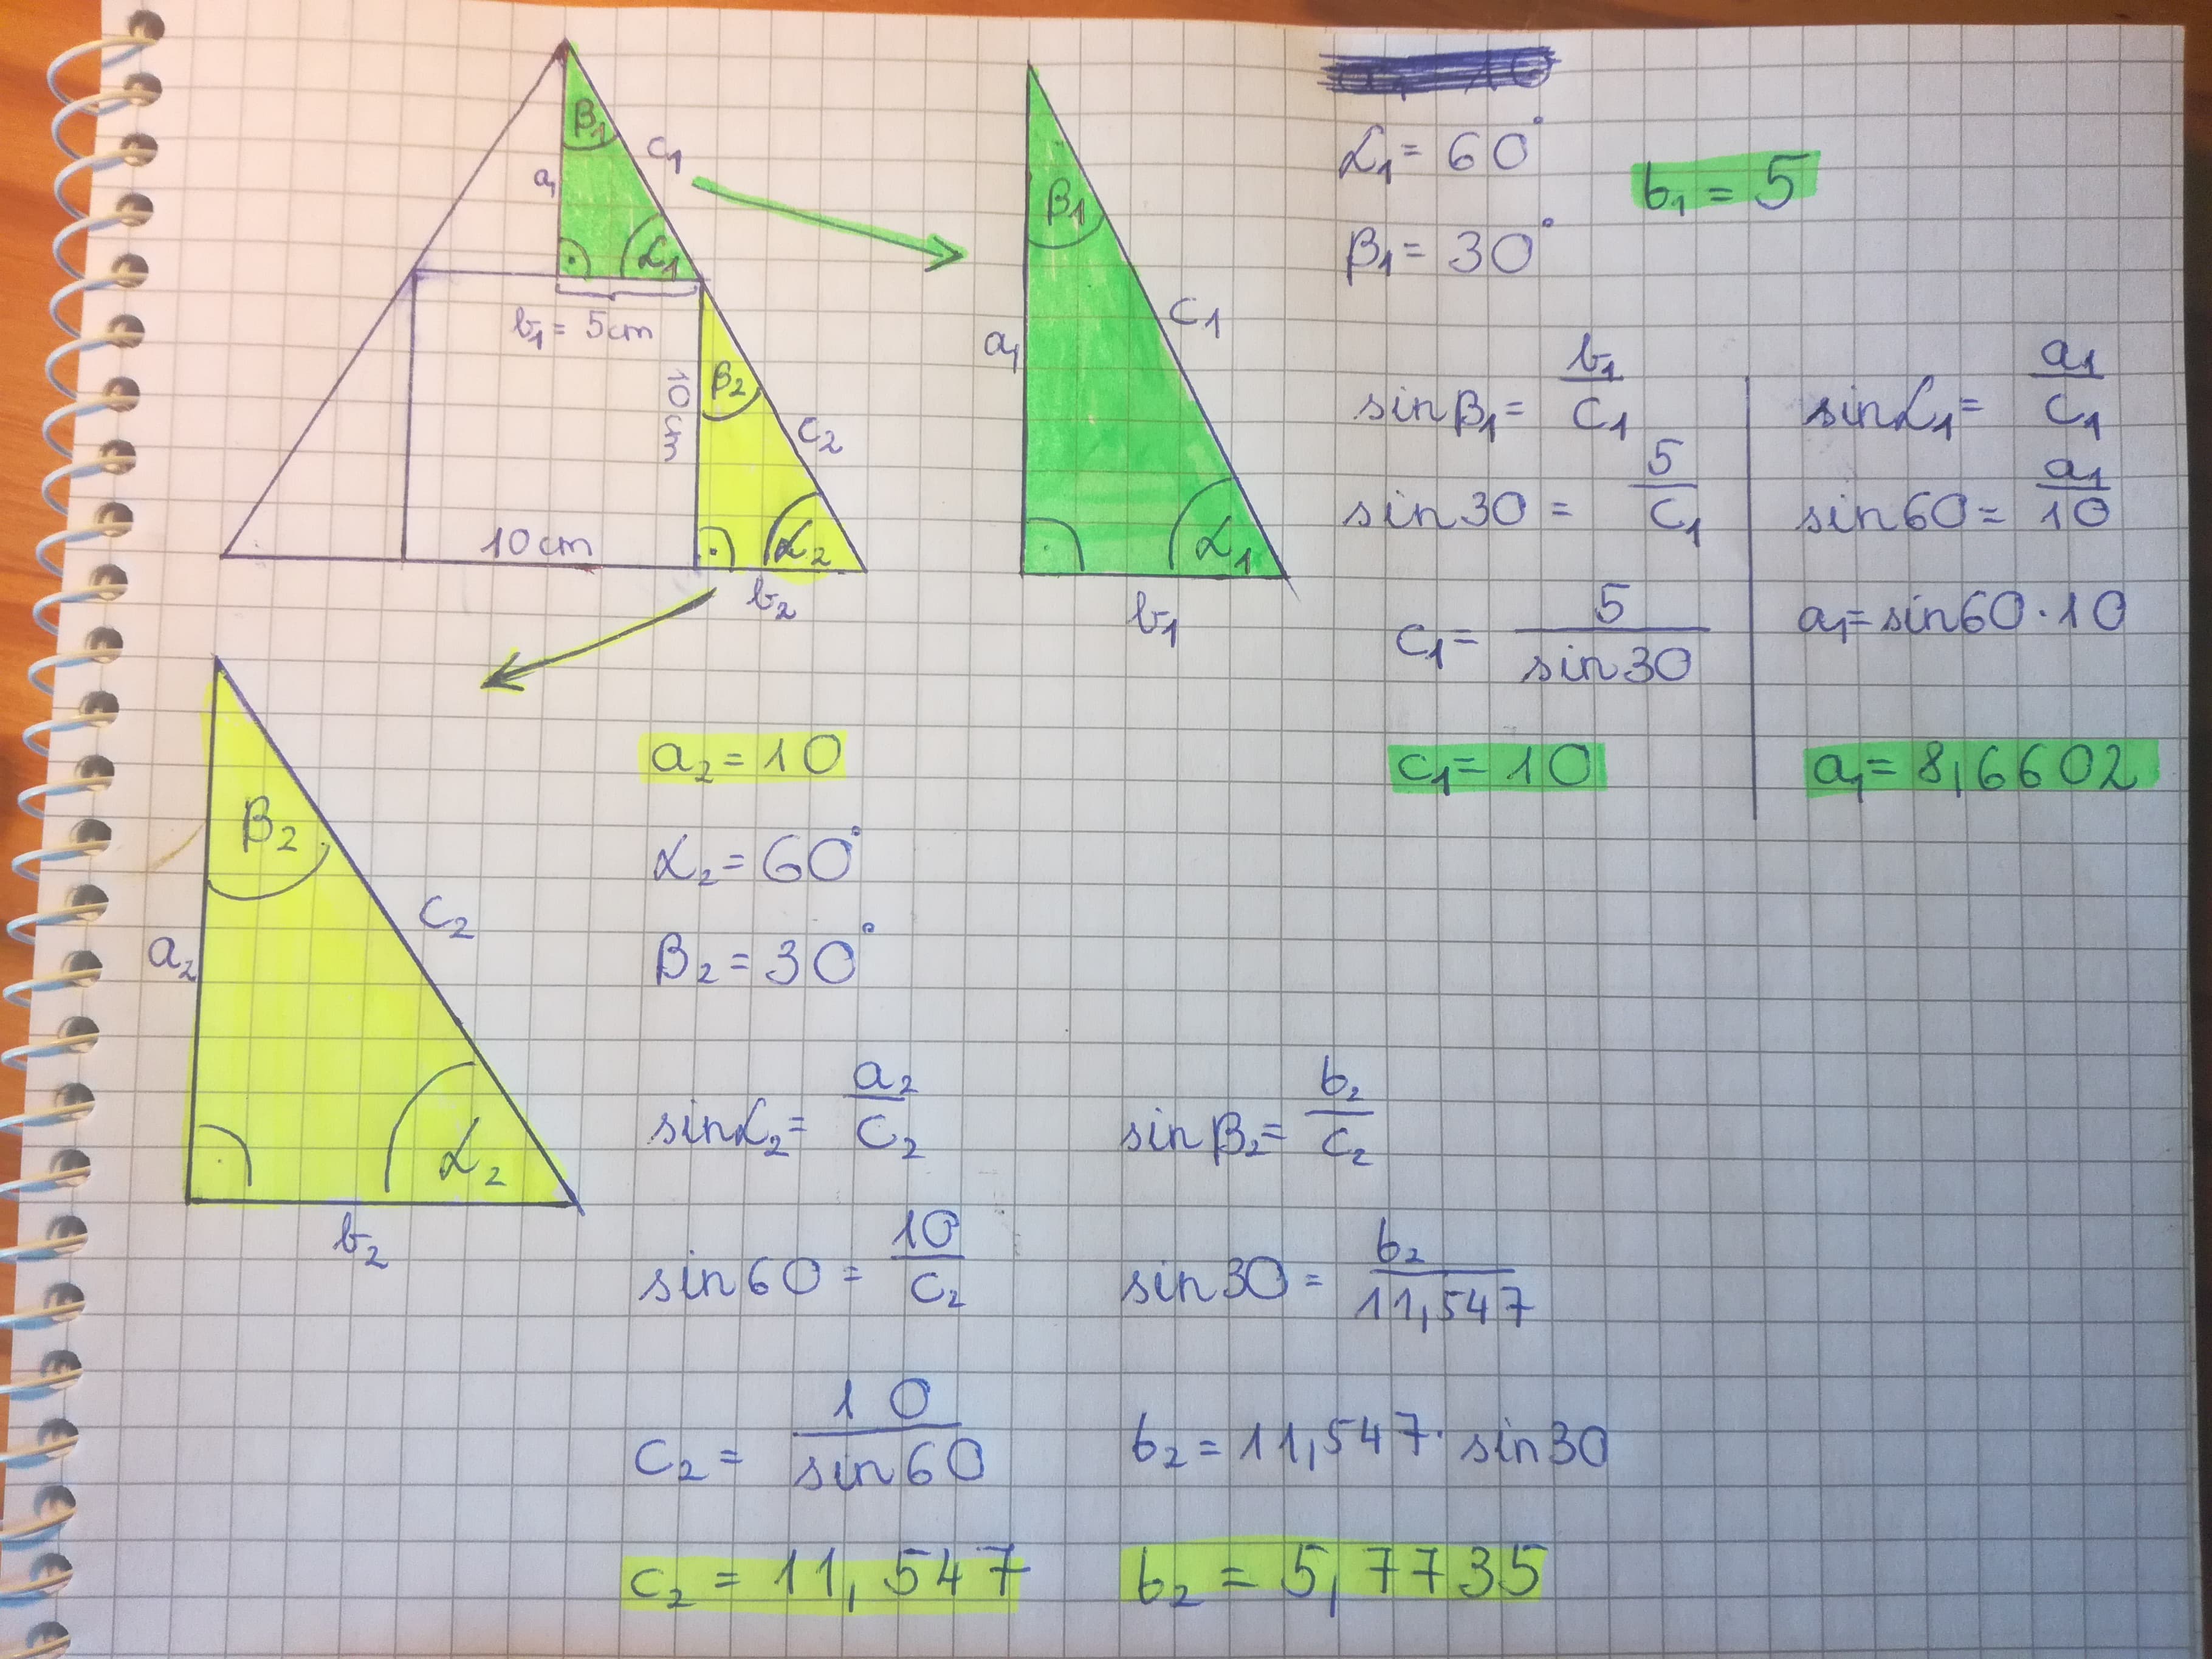 β₁
c₁
a₁
α₁
b₁ = 5cm
10 cm
β₂
c₂
10cm
α₂
b₂
β₁
a₁
c₁
α₁
b₁
α₁ = 60°
b₁ = 5
β₁ = 30°
sin β₁ = b₁/c₁
sin 30 = 5/c₁
c₁ = 5/sin 30
c₁ = 10
sin α₁ = a₁/c₁
sin 60 = a₁/10
a₁ = sin 60 · 10
a₁ = 8,6602
β₂
a₂
c₂
α₂
b₂
a₂ = 10
α₂ = 60°
β₂ = 30°
sin α₂ = a₂/c₂
sin 60 = 10/c₂
c₂ = 10/sin 60
c₂ = 11,547
sin β₂ = b₂/c₂
sin 30 = b₂/11,547
b₂ = 11,547 · sin 30
b₂ = 5,7735